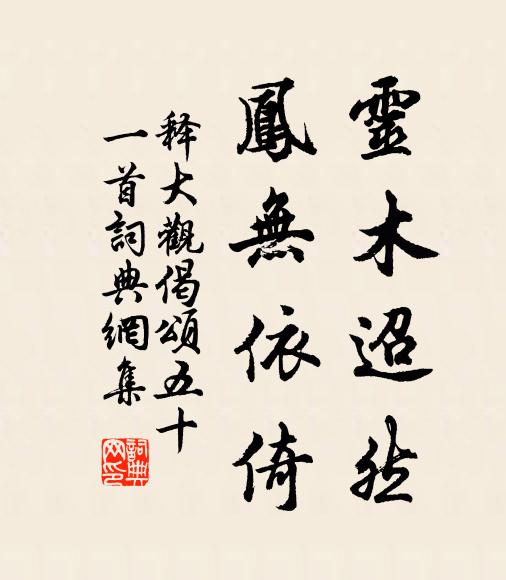 靈木迢然
鳳無依倚
释大觀偈頌五十
一首詞典網集
詞典網印